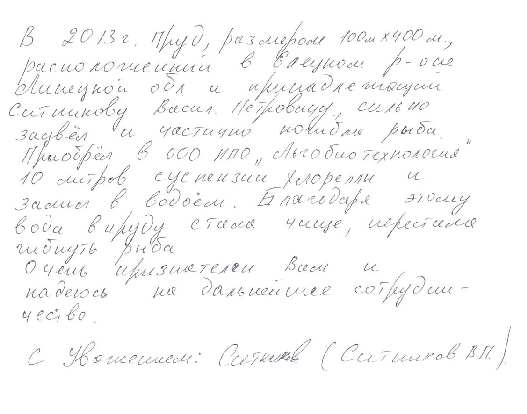 В 2013г. пруд, размером 100м х 400м.,
расположенный в Елецком р-оне
Липецкой обл и принадлежащий
Ситникову Васил. Петровичу, сильно
зацвёл и частично погибла рыба.
Приобрёл в ООО НПО „Альгобиотехнология"
10 литров суспензии хлорелли и
залил в водоём. Благодаря этому
вода в пруду стала чище, перестала
гибнуть рыба
Очень признателен Вам и
надеюсь на дальнейшее сотрудни-
чество.
С Уважением: Ситников (Ситников В.П.)